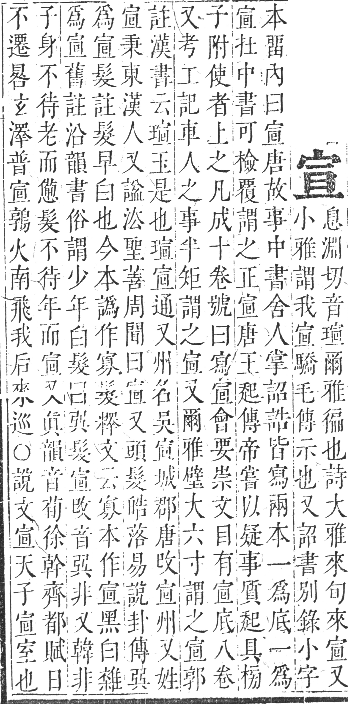 宣 息淵切音瑄爾雅徧也詩大雅來旬來宣又
小雅謂我宣驕毛傳示也又詔書別錄小字
本畱內曰宣唐故事中書舍人掌詔誥皆寫兩本一爲底一爲
宣在中書可檢覆謂之正宣唐王起傳帝嘗以疑事質起具榜
子附使者上之凡成十卷號曰寫宣會要崇文目有宣底八卷
又考工記車人之事半矩謂之宣又爾雅璧大六寸謂之宣郭
註漢書云瑄玉是也瑄宣通又州名吳宣城郡唐改宣州又姓
宣秉東漢人又謚法聖善周聞曰宣又頭髮皓落易說卦傳巽
爲宣髮註髮早白也今本譌作寡髮釋文云寡本作宣黑白雜
爲宣舊註沿韻書俗謂少年白髮曰巽髮宣改音巽非又韓非
子身不待老而憊髮不待年而宣又眞韻音荀徐幹齊都賦日
不遷晷玄澤普宣鶉火南飛我后來巡〇說文宣天子宣室也